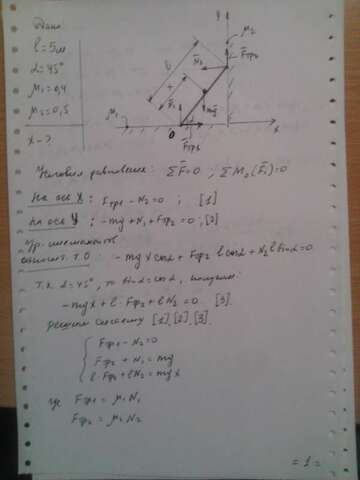 Дано:
l = 5м
α = 45°
μ₁ = 0,4
μ₂ = 0,5
x - ?
y
μ₂
F̄тр₂
N̄₂
l
x
N̄₁
mḡ
μ₁
O
F̄тр₁
x
Условия равновесия: ΣF̄=0 ; ΣM₀(F̄ᵢ)=0
На ось X: Fтр₁ - N₂ = 0 ; [1]
на ось y: -mg + N₁ + Fтр₂ = 0 ; [2]
Ур. моментов
относит. т.О: -mg x cosα + Fтр₂ l cosα + N₂ l sinα = 0
Т.к. α = 45°, то sinα = cosα, получим:
-mgx + l·Fтр₂ + lN₂ = 0 [3].
решим систему [1], [2], [3].
Fтр₁ - N₂ = 0
Fтр₂ + N₁ = mg
l Fтр₂ + lN₂ = mgx
где Fтр₁ = μ₁N₁
Fтр₂ = μ₂N₂
= 1 =